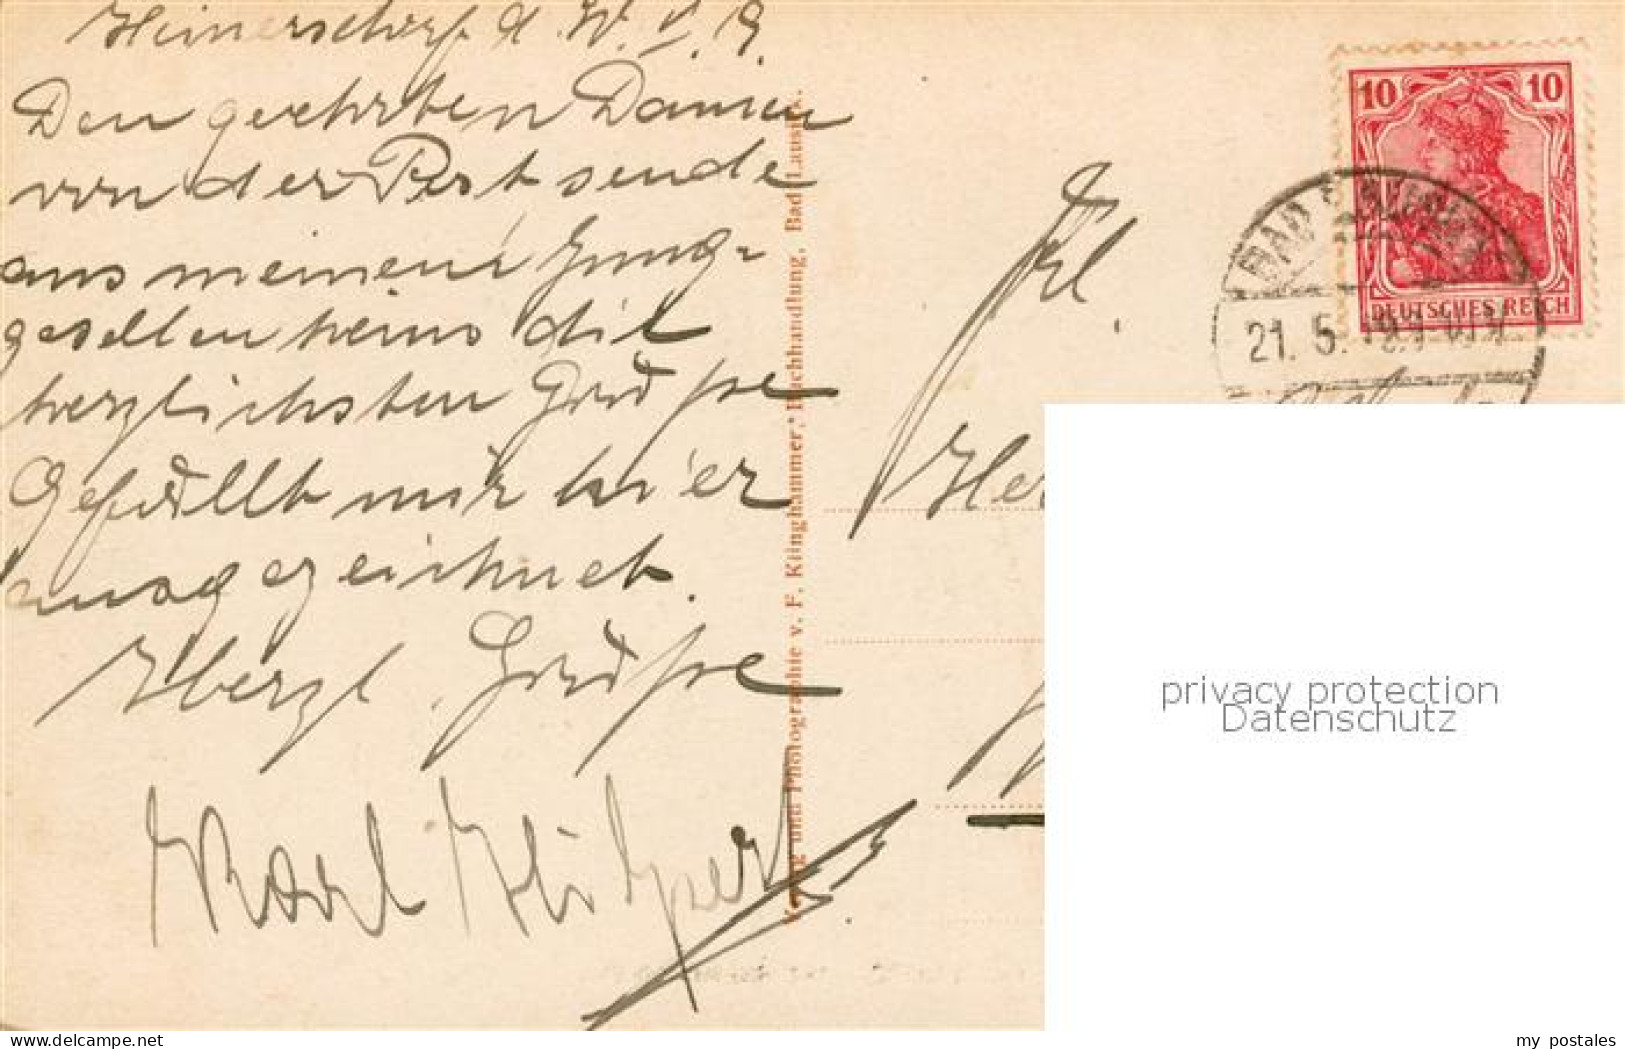 Heinersdorf d.
Den geehrten Damen
von der Post sende
aus meinem Jung-
gesellenheims die
herzlichsten Grüße
Gefällt mir hier
ausgezeichnet.
Herzl. Grüße
Karl
Verlag und Photographie v. F. Klinghammer, Buchhandlung, Bad Lausick.
Frl.
10 10
DEUTSCHES REICH
BAD
21. 5.
privacy protection
Datenschutz
www.oldthing.de
my postales